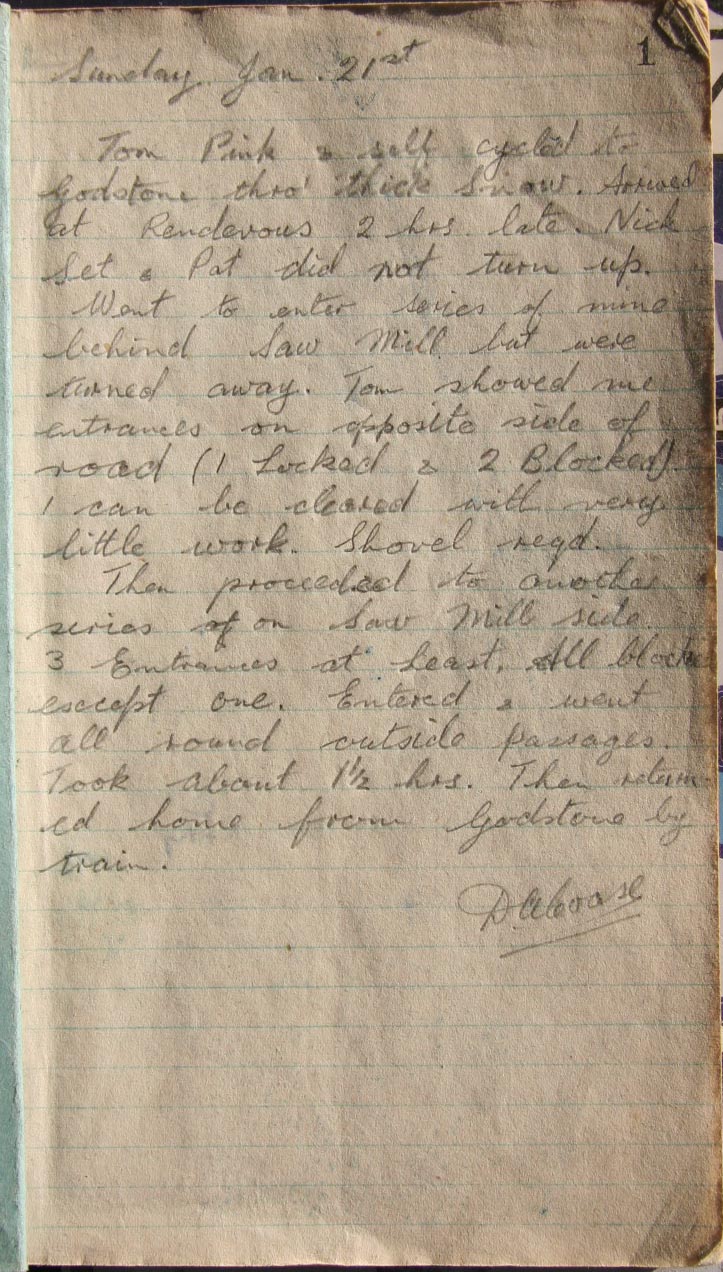 1
Sunday Jan. 21st
Tom Pink & self cycled to
Godstone thro' thick snow. Arrived
at Rendevous 2 hrs. late. Nick
Set & Pat did not turn up.
Went to enter series of mine
behind Saw Mill but were
turned away. Tom showed me
entrances on opposite side of
road (1 Locked & 2 Blocked)
1 can be cleared with very
little work. Shovel reqd.
Then proceeded to another
series of on Saw Mill side.
3 Entrances at least. All block
except one. Entered & went
all round outside passages.
Took about 1 1/2 hrs. Then return-
ed home from Godstone by
train.